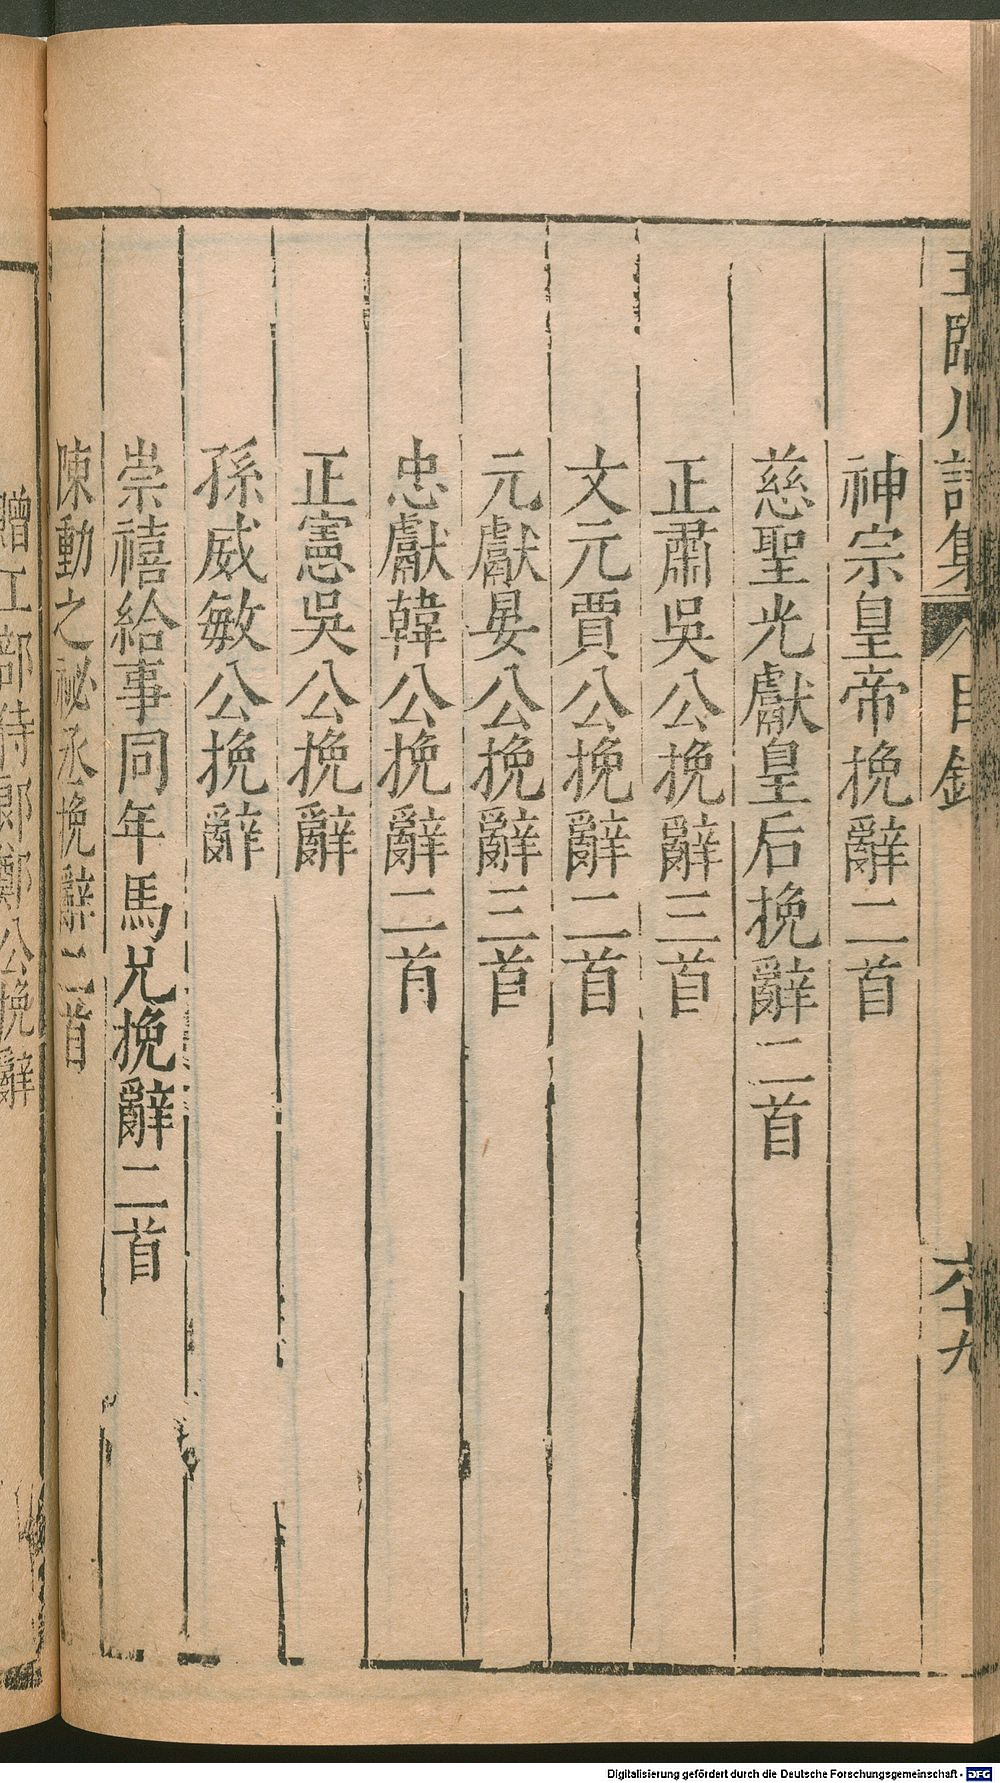 王臨川詩集 目錄 六十九
神宗皇帝挽辭二首
慈聖光獻皇后挽辭二首
正肅吳公挽辭三首
文元賈公挽辭二首
元獻晏公挽辭三首
忠獻韓公挽辭二首
正憲吳公挽辭
孫威敏公挽辭
崇禧給事同年馬兄挽辭二首
陳動之祕丞挽辭二首
贈工部侍郎鄭公挽辭
Digitalisierung gefördert durch die Deutsche Forschungsgemeinschaft - DFG